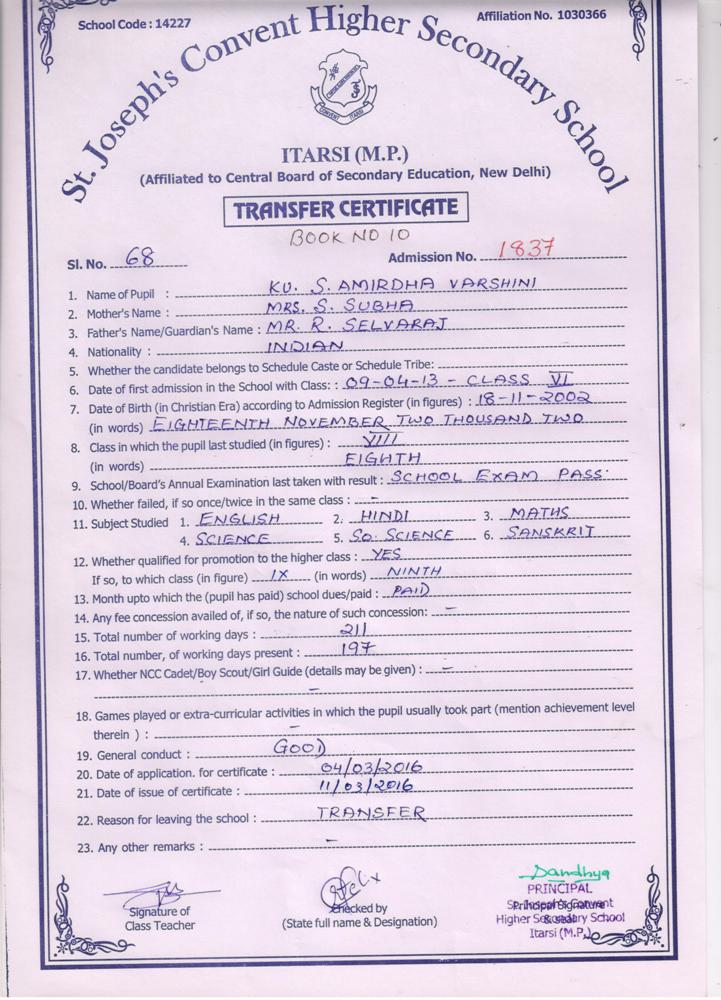 School Code : 14227
Affiliation No. 1030366
St. Joseph's Convent Higher Secondary School
CONVENT ITARSI
ITARSI (M.P.)
(Affiliated to Central Board of Secondary Education, New Delhi)
TRANSFER CERTIFICATE
BOOK NO 10
Sl. No. 68 Admission No. 1837
1. Name of Pupil : KU. S. AMIRDHA VARSHINI
2. Mother's Name : MRS. S. SUBHA
3. Father's Name/Guardian's Name : MR. R. SELVARAJ
4. Nationality : INDIAN
5. Whether the candidate belongs to Schedule Caste or Schedule Tribe:
6. Date of first admission in the School with Class: : 09-04-13 - CLASS VI
7. Date of Birth (in Christian Era) according to Admission Register (in figures) : 18-11-2002
(in words) EIGHTEENTH NOVEMBER TWO THOUSAND TWO
8. Class in which the pupil last studied (in figures) : VIII
(in words) EIGHTH
9. School/Board's Annual Examination last taken with result : SCHOOL EXAM PASS
10. Whether failed, if so once/twice in the same class : -
11. Subject Studied 1. ENGLISH 2. HINDI 3. MATHS
4. SCIENCE 5. SO. SCIENCE 6. SANSKRIT
12. Whether qualified for promotion to the higher class : YES
If so, to which class (in figure) IX (in words) NINTH
13. Month upto which the (pupil has paid) school dues/paid : PAID
14. Any fee concession availed of, if so, the nature of such concession: -
15. Total number of working days : 211
16. Total number, of working days present : 197
17. Whether NCC Cadet/Boy Scout/Girl Guide (details may be given) : -
-
18. Games played or extra-curricular activities in which the pupil usually took part (mention achievement level
therein ) : -
19. General conduct : GOOD
20. Date of application. for certificate : 04/03/2016
21. Date of issue of certificate : 11/03/2016
22. Reason for leaving the school : TRANSFER
23. Any other remarks : -
Sandhya
PRINCIPAL
Signature of
Class Teacher
Checked by
(State full name & Designation)
Principal Signature
& seal
St. Joseph's Convent
Higher Secondary School
Itarsi (M.P.)